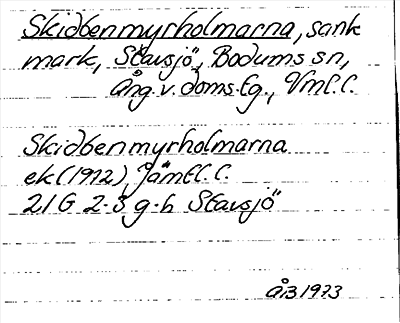 Skidbenmyrholmarna, sank
mark, Stavsjö, Bodums sn,
Ång. v. doms. tg.,
Skidbenmyrholmarna
ek (1972) Jämtl. C.
21G 2-3 g-h Stavsjö
ÅB 1973